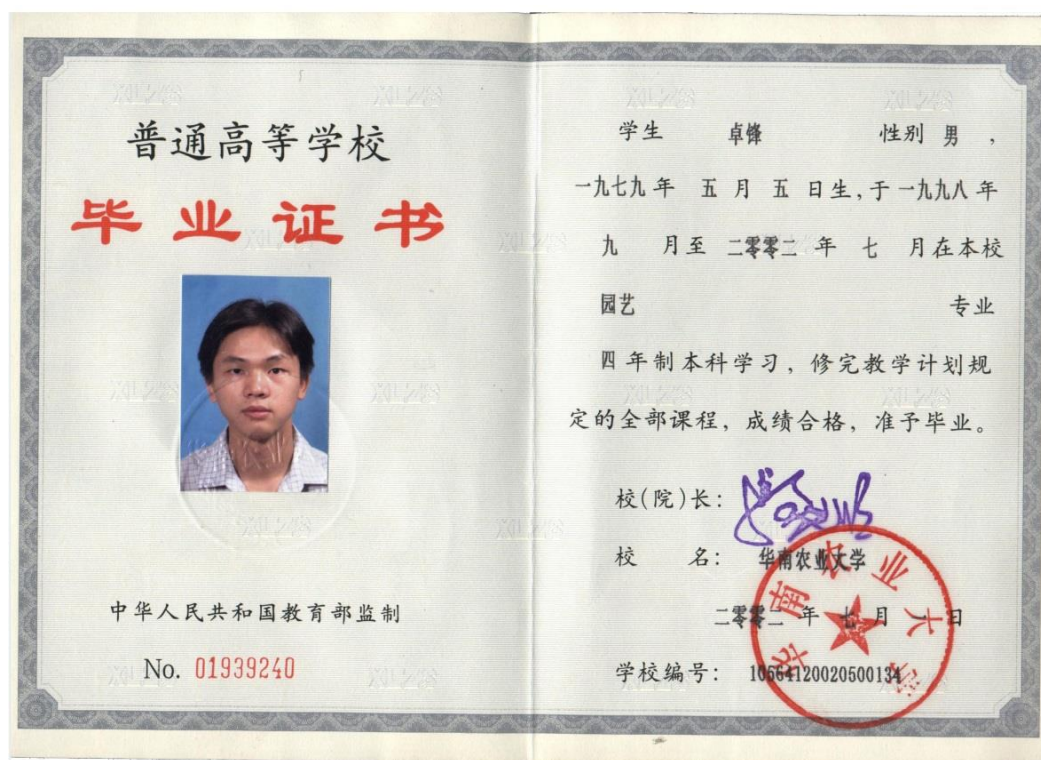 普通高等学校
毕业证书
中华人民共和国教育部监制
No. 01939240
学生 卓锋 性别 男，
一九七九年 五月 五日生,于一九九八年
九 月至 二零零二 年 七 月在本校
园艺 专业
四年制本科学习，修完教学计划规
定的全部课程，成绩合格，准予毕业。
校(院)长：
校 名： 华南农业大学
二零零二 年 七月 日
学校编号： 10564120020500134
华南农业大学